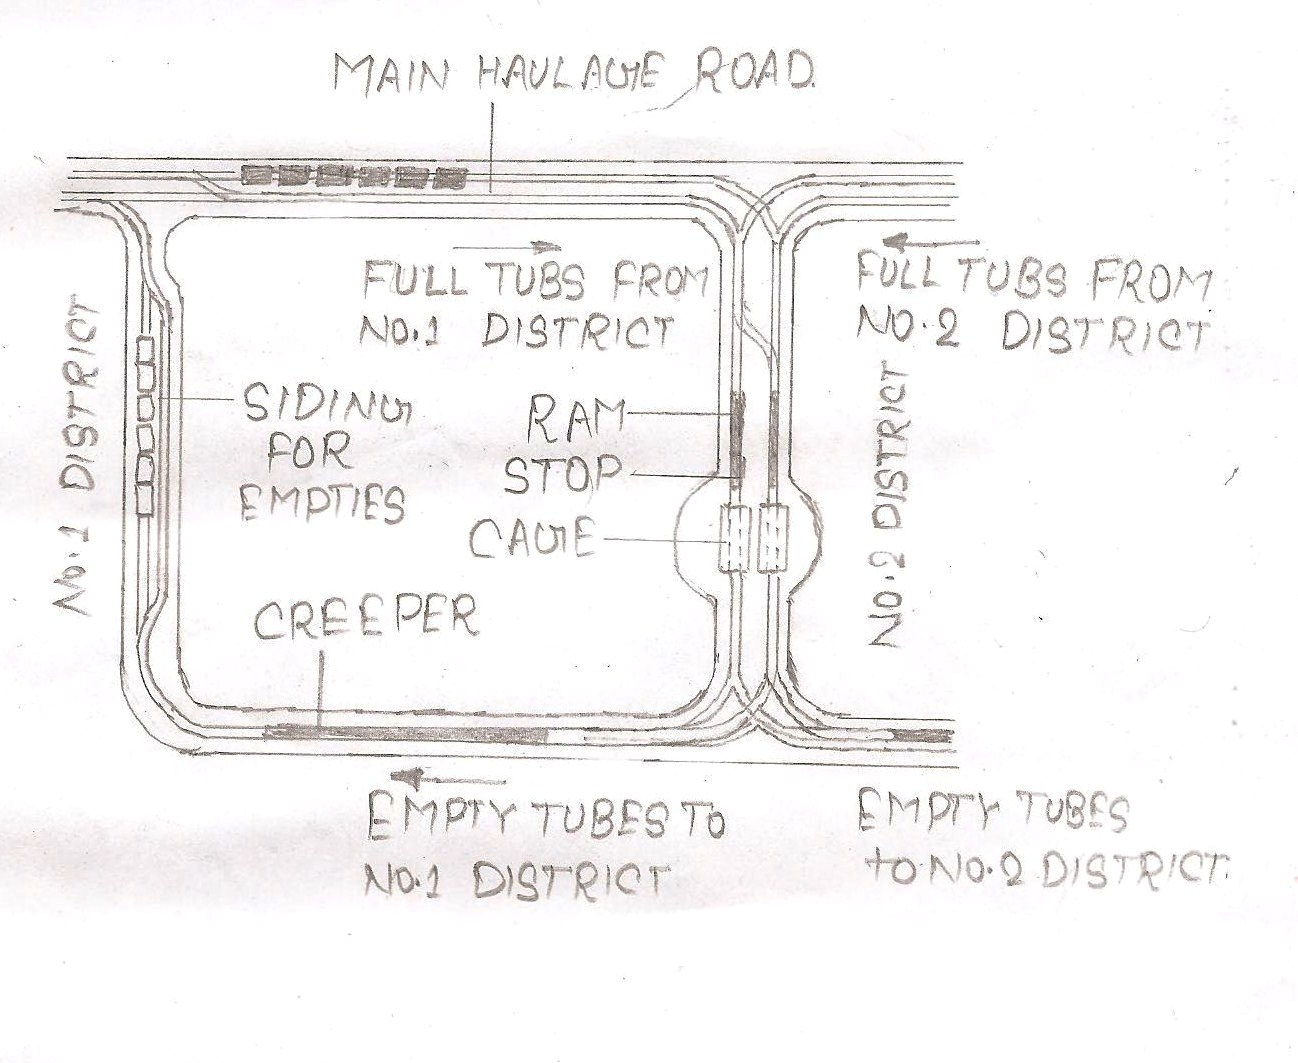 MAIN HAULAGE ROAD
FULL TUBS FROM
NO.1 DISTRICT
FULL TUBS FROM
NO.2 DISTRICT
NO.1 DISTRICT
SIDING
FOR
EMPTIES
RAM
STOP
CAGE
NO.2 DISTRICT
CREEPER
EMPTY TUBES TO
NO.1 DISTRICT
EMPTY TUBES
to NO.2 DISTRICT.